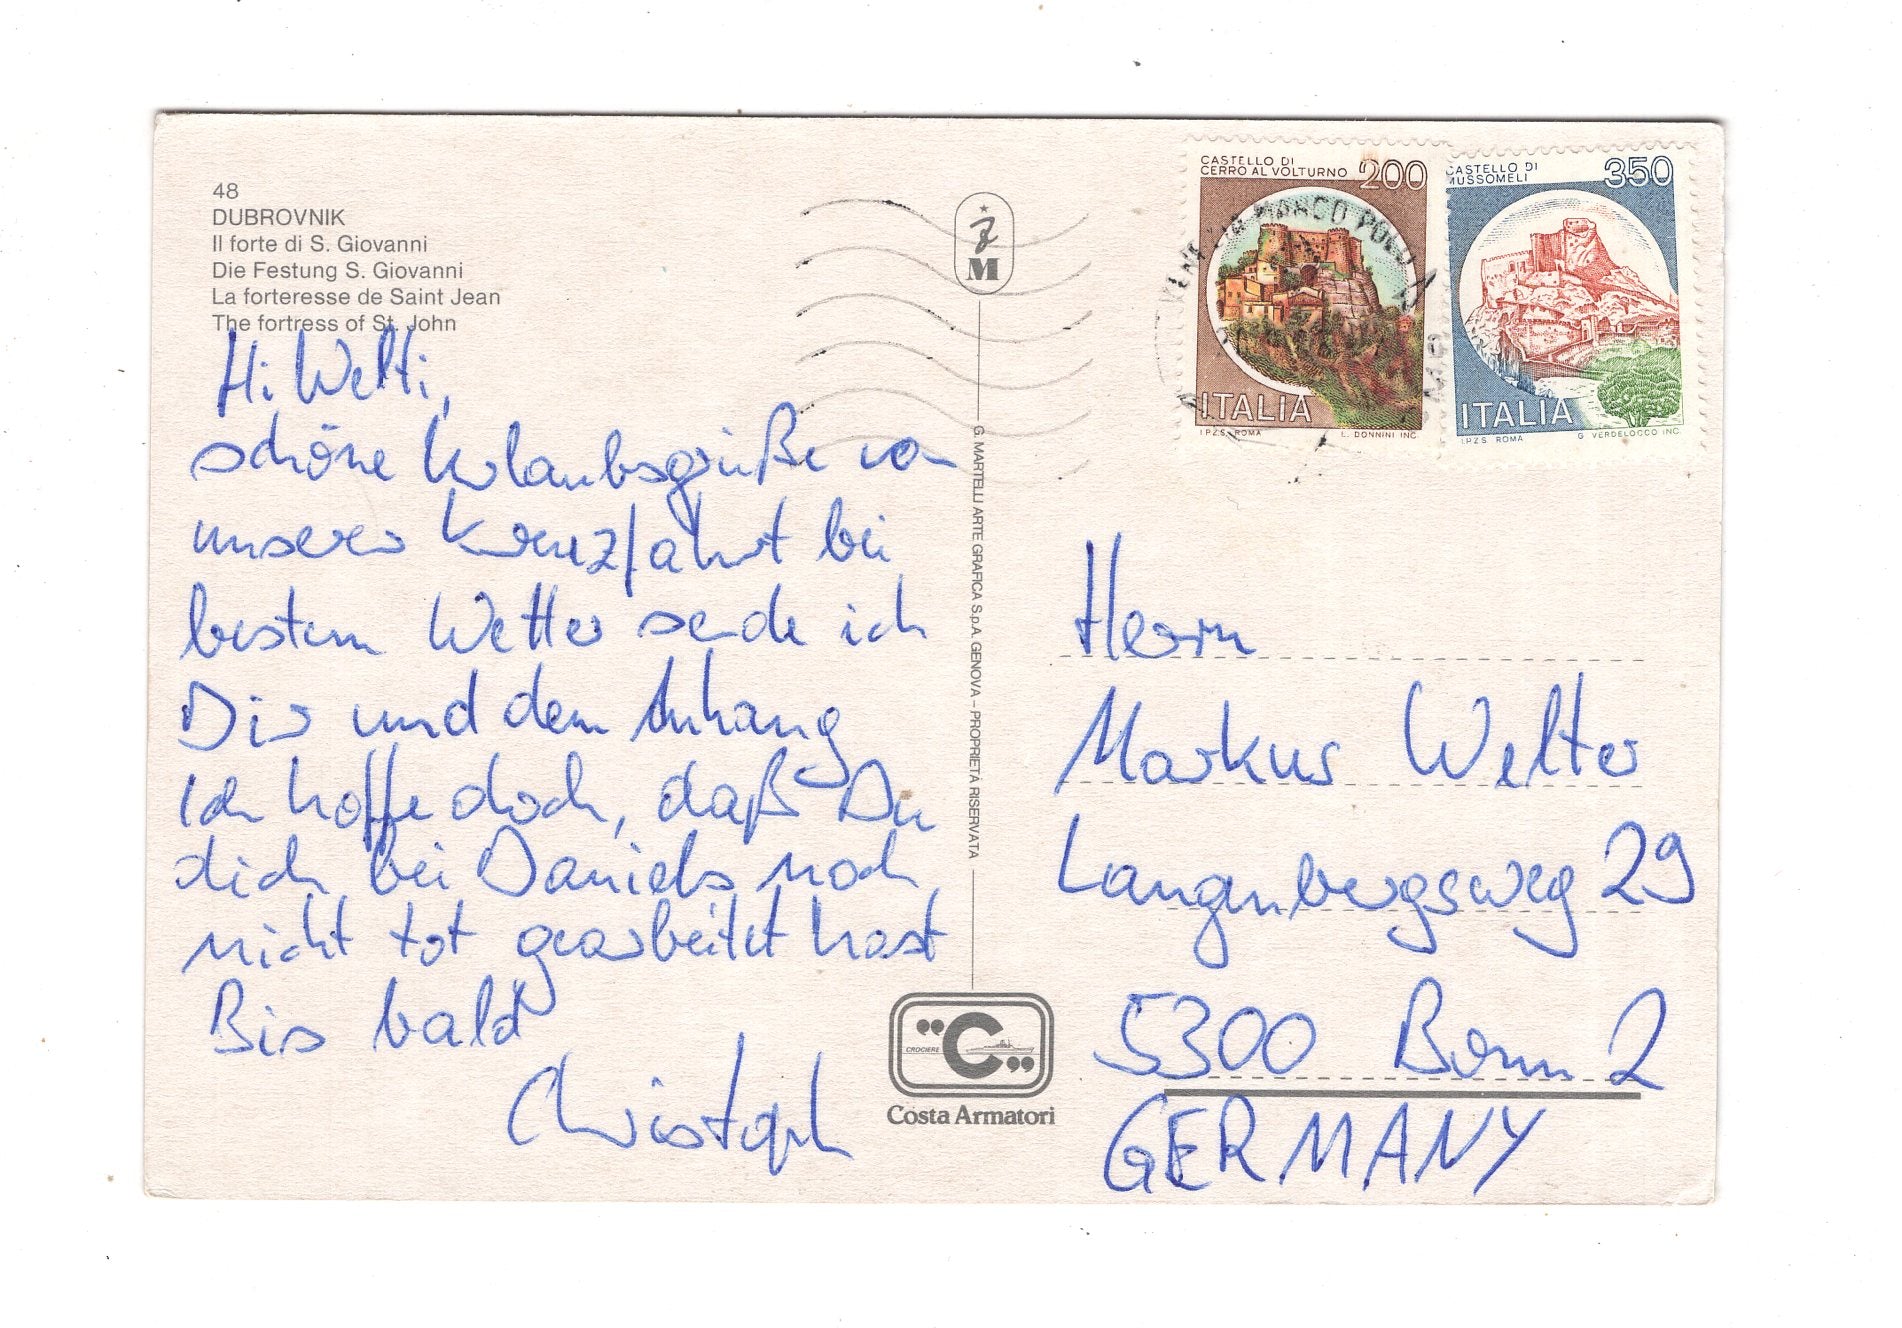 48
DUBROVNIK
Il forte di S. Giovanni
Die Festung S. Giovanni
La forteresse de Saint Jean
The fortress of St. John
Hi Welti,
schöne Urlaubsgrüße von
unserer Kreuzfahrt bei
bestem Wetter sende ich
Dir und dem Anhang
Ich hoffe doch, daß Du
dich bei Daniels noch
nicht tot gearbeitet hast
Bis bald
Christoph
M
G. MARTELLI ARTE GRAFICA S.p.A. GENOVA – PROPRIETÀ RISERVATA
CROCIERE
"C"
Costa Armatori
CASTELLO DI
CERRO AL VOLTURNO 200
ITALIA
I.P.Z.S. ROMA L. DONNINI INC.
CASTELLO DI
MUSSOMELI 350
ITALIA
I.P.Z.S. ROMA G. VERDELOCCO INC.
MARCO POLO
Herrn
Markus Welter
Langenbergsweg 29
5300 Bonn 2
GERMANY